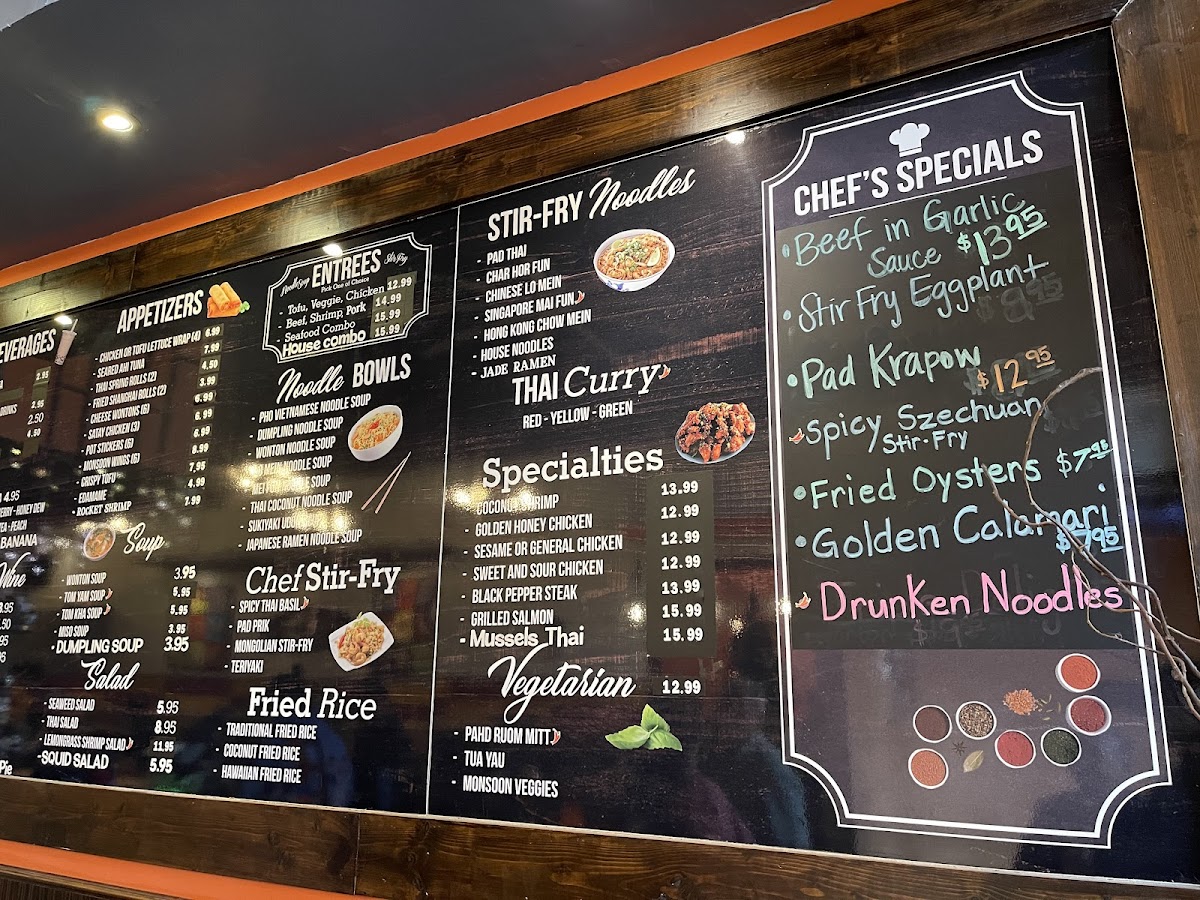 EVERAGES
2.95
DRINKS 2.95
2.50
4.50
4.95
ERRY - HONEY DEW
TEA - PEACH
BANANA
Wine
3.95
.50
.95
Pie
APPETIZERS
- CHICKEN OR TOFU LETTUCE WRAP (4) 6.99
- SEARED AHI TUNA 7.99
- THAI SPRING ROLLS (2) 4.50
- FRIED SHANGHAI ROLLS (2) 3.99
- CHEESE WONTONS (6) 6.99
- SATAY CHICKEN (3) 6.99
- POT STICKERS (6) 6.99
- MONSOON WINGS (6) 8.99
- CRISPY TOFU 7.95
- EDAMAME 4.99
- ROCKET SHRIMP 7.99
Soup
- WONTON SOUP 3.95
- TOM YAM SOUP 5.95
- TOM KHA SOUP 5.95
- MISO SOUP 3.95
- DUMPLING SOUP 3.95
Salad
- SEAWEED SALAD 5.95
- THAI SALAD 8.95
- LEMONGRASS SHRIMP SALAD 11.95
- SQUID SALAD 5.95
ENTREES
Stir Fry
Pick One of Choice
- Tofu, Veggie, Chicken 12.99
- Beef, Shrimp, Pork 14.99
- Seafood Combo 15.99
House combo 15.99
Noodle BOWLS
- PHO VIETNAMESE NOODLE SOUP
- DUMPLING NOODLE SOUP
- WONTON NOODLE SOUP
MEIN NOODLE SOUP
- MEI FUN NOODLE SOUP
- THAI COCONUT NOODLE SOUP
- SUKIYAKI UDON SOUP
- JAPANESE RAMEN NOODLE SOUP
Chef Stir-Fry
- SPICY THAI BASIL
- PAD PRIK
- MONGOLIAN STIR-FRY
- TERIYAKI
Fried Rice
- TRADITIONAL FRIED RICE
- COCONUT FRIED RICE
- HAWAIIAN FRIED RICE
STIR-FRY Noodles
- PAD THAI
- CHAR HOR FUN
- CHINESE LO MEIN
- SINGAPORE MAI FUN
- HONG KONG CHOW MEIN
- HOUSE NOODLES
- JADE RAMEN
THAI Curry
RED - YELLOW - GREEN
Specialties
- COCONUT SHRIMP 13.99
- GOLDEN HONEY CHICKEN 12.99
- SESAME OR GENERAL CHICKEN 12.99
- SWEET AND SOUR CHICKEN 12.99
- BLACK PEPPER STEAK 13.99
- GRILLED SALMON 15.99
- Mussels Thai 15.99
Vegetarian 12.99
- PAHD RUOM MITT
- TUA YAU
- MONSOON VEGGIES
CHEF'S SPECIALS
• Beef in Garlic
Sauce $13.95
• Stir Fry Eggplant
• Pad Krapow
$12.95
Spicy Szechuan
Stir-Fry
• Fried Oysters $7.95
• Golden Calamari
$7.95
Drunken Noodles